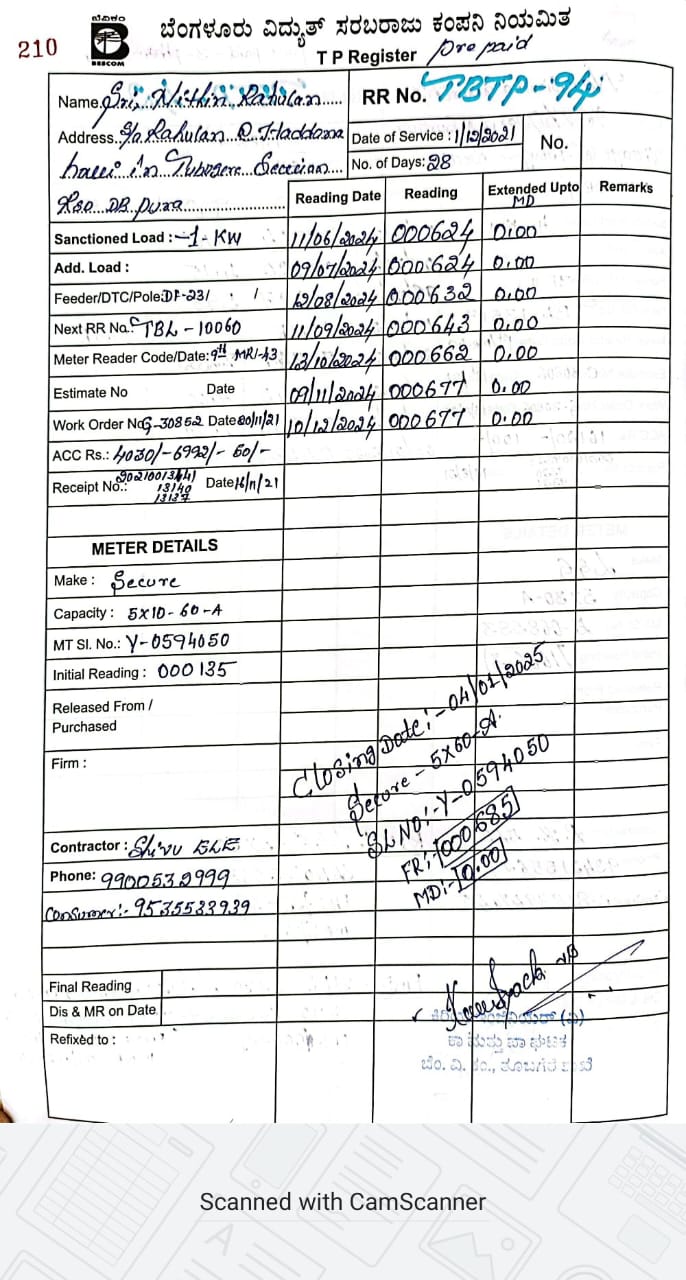 210
ಬೆವಿಕಂ
BESCOM
ಬೆಂಗಳೂರು ವಿದ್ಯುತ್ ಸರಬರಾಜು ಕಂಪನಿ ನಿಯಮಿತ
T P Register prepaid
Name. Sri. Nithin Rahulan
RR No. TBTP-94
Address. S/o Rahulan
Date of Service : 1/12/2021
No.
in Tubagere
No. of Days: 28
DB pura
Reading Date Reading Extended Upto MD Remarks
Sanctioned Load :-1- KW 11/06/2024 000624 0.00
Add. Load : 09/07/2024 000624 0.00
Feeder/DTC/Pole:DF-23/ 12/08/2024 000632 0.00
Next RR No.: TBL-10060 11/09/2024 000643 0.00
Meter Reader Code/Date: 9th MR/-43 12/10/2024 000662 0.00
Estimate No Date 09/11/2024 000677 0.00
Work Order No G-30852 Date 20/11/21 10/12/2024 000677 0.00
ACC Rs.: 4030/-6992/- 50/-
Receipt No.: 13140 13137 Date 16/11/21
METER DETAILS
Make : Secure
Capacity : 5X10-60-A
MT Sl. No.: Y-0594050
Initial Reading : 000135
Released From /
Purchased
Firm :
Closing Date:-04/01/2025
Secure - 5X60-A.
SL NO:-Y-0594050
FR:-000685
MD:-0.00
Contractor : Shivu ELE
Phone: 9900532999
Consumer:- 9535533939
Final Reading
Dis & MR on Date
Refixed to :
ಕಾ ಮತ್ತು ಪಾ ಘಟಕ
ಬೆಂ. ವಿ. ಕಂ., ತೂಬಗೆರೆ
Scanned with CamScanner